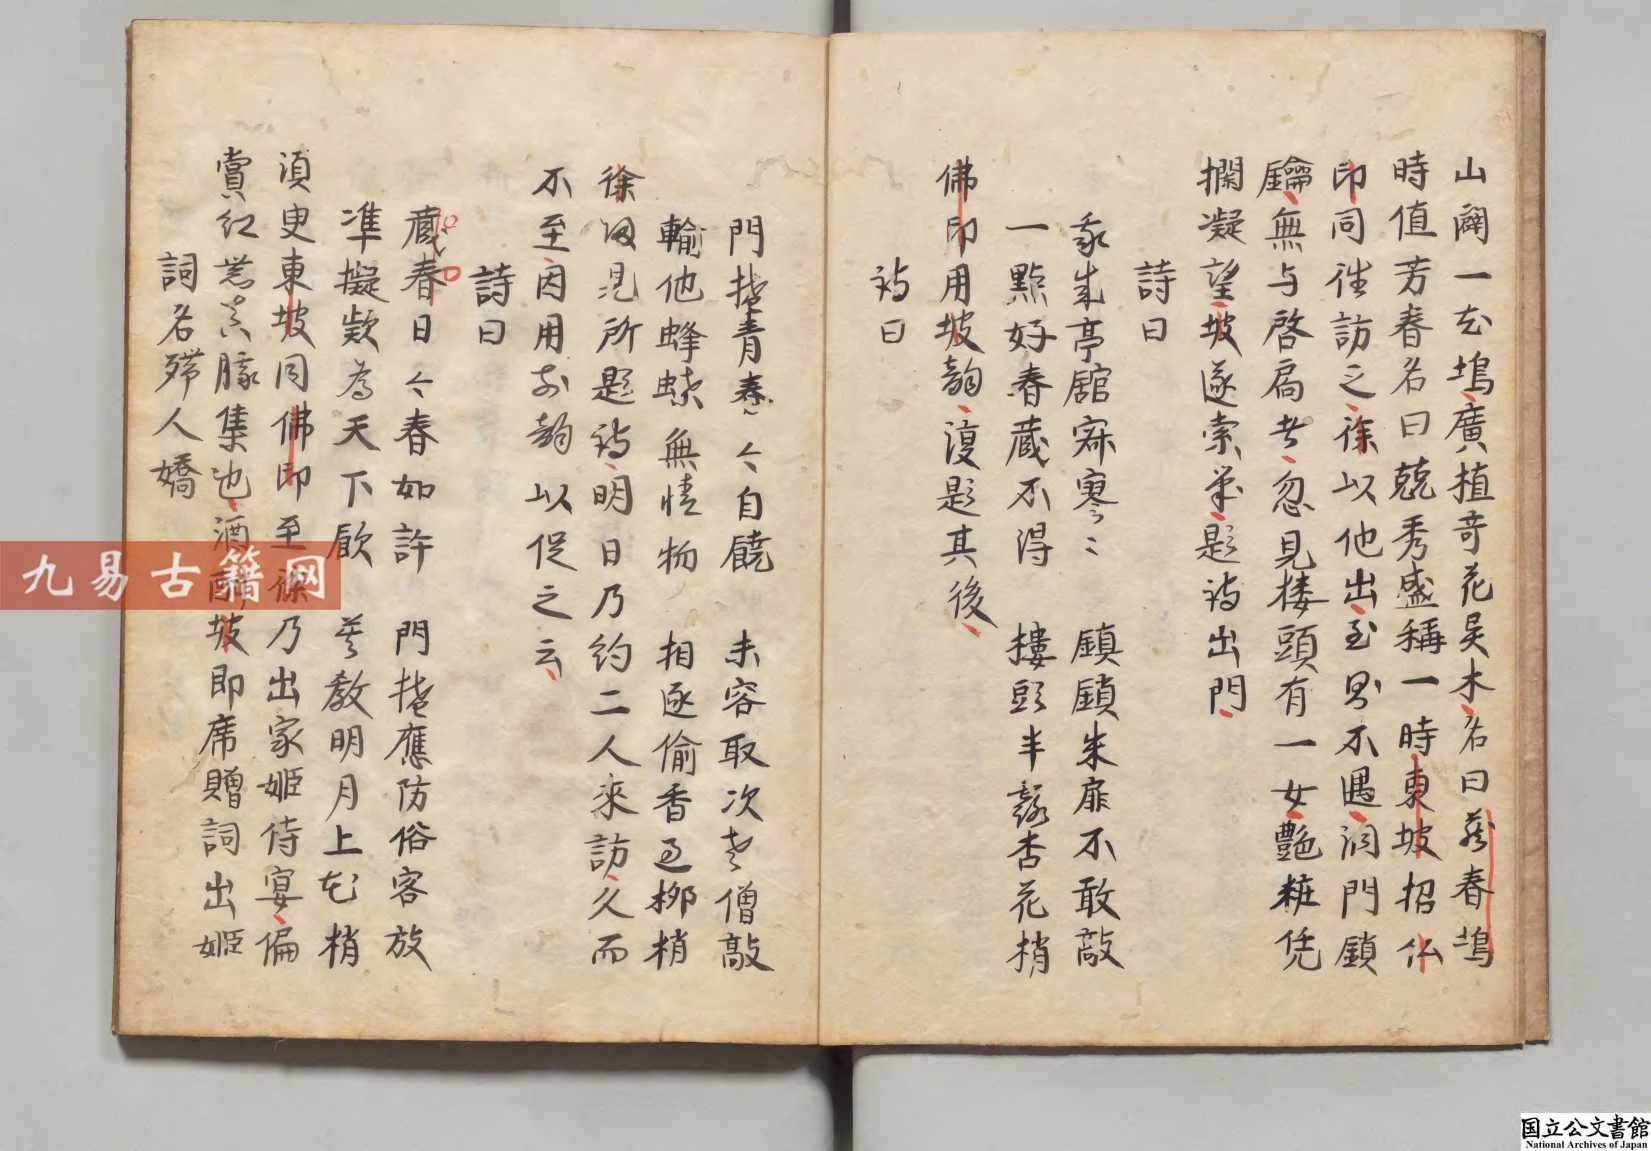 山闢一花塢廣植奇花異木名曰藏春塢
時值芳春名曰兢秀盛稱一時東坡招仏
印同徃訪之徐以他出至則不遇洞門鎖
鑰無与啓扄者忽見楼頭有一女艷粧凭
攔凝望坡遂索筆題詩出門
詩曰
我来亭舘寂寥〻鎮鎖朱扉不敢敲
一點好春藏不得樓頭半露杏花梢
佛印用坡韵復題其後
詩曰
門掩青春〻自饒未容取次老僧敲
輸他蜂蝶無情物相逐偷香過栁梢
徐㱕見所題詩明日乃約二人來訪久而
不至因用前韵以促之云
詩曰
藏春日〻春如許門掩應防俗客放
準擬欵為天下飲莫教明月上花梢
須臾東坡同佛印至徐乃出家姬侍宴偏
賞紅裳集也酒酣坡即席贈詞出姬
詞名殢人嬌
九易古籍网
国立公文書館
National Archives of Japan